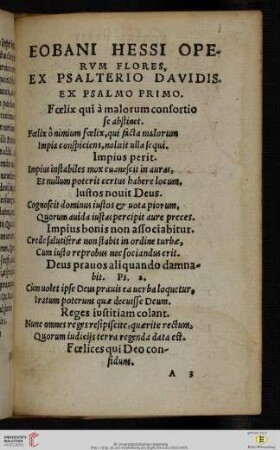 EOBANI HESSI OPE-
RVM FLORES,
EX PSALTERIO DAVIDIS.
EX PSALMO PRIMO.
Fœlix qui à malorum consortio
se abstinet.
Fœlix ô nimium fœlix, qui facta malorum
Impia conspiciens, noluit ulla sequi.
Impius perit.
Impius instabiles mox euanescit in auras,
Et nullum poterit certus habere locum.
Iustos nouit Deus.
Cognoscit dominus iustos & uota piorum,
Quorum auida iustas percipit aure preces.
Impius bonis non associabitur.
Crede salutiferæ non stabit in ordine turbæ,
Cum iusto reprobus nec sociandus erit.
Deus prauos aliquando damna-
bit. Ps. 2.
Cùm uolet ipse Deus prauis ea uerba loquetur,
Iratum poterunt quæ decuisse Deum.
Reges iustitiam colant.
Nunc omnes reges resipiscite, quærite rectum,
Quorum iudicijs terra regenda data est.
Fœlices qui Deo con-
fidunt.
A 3